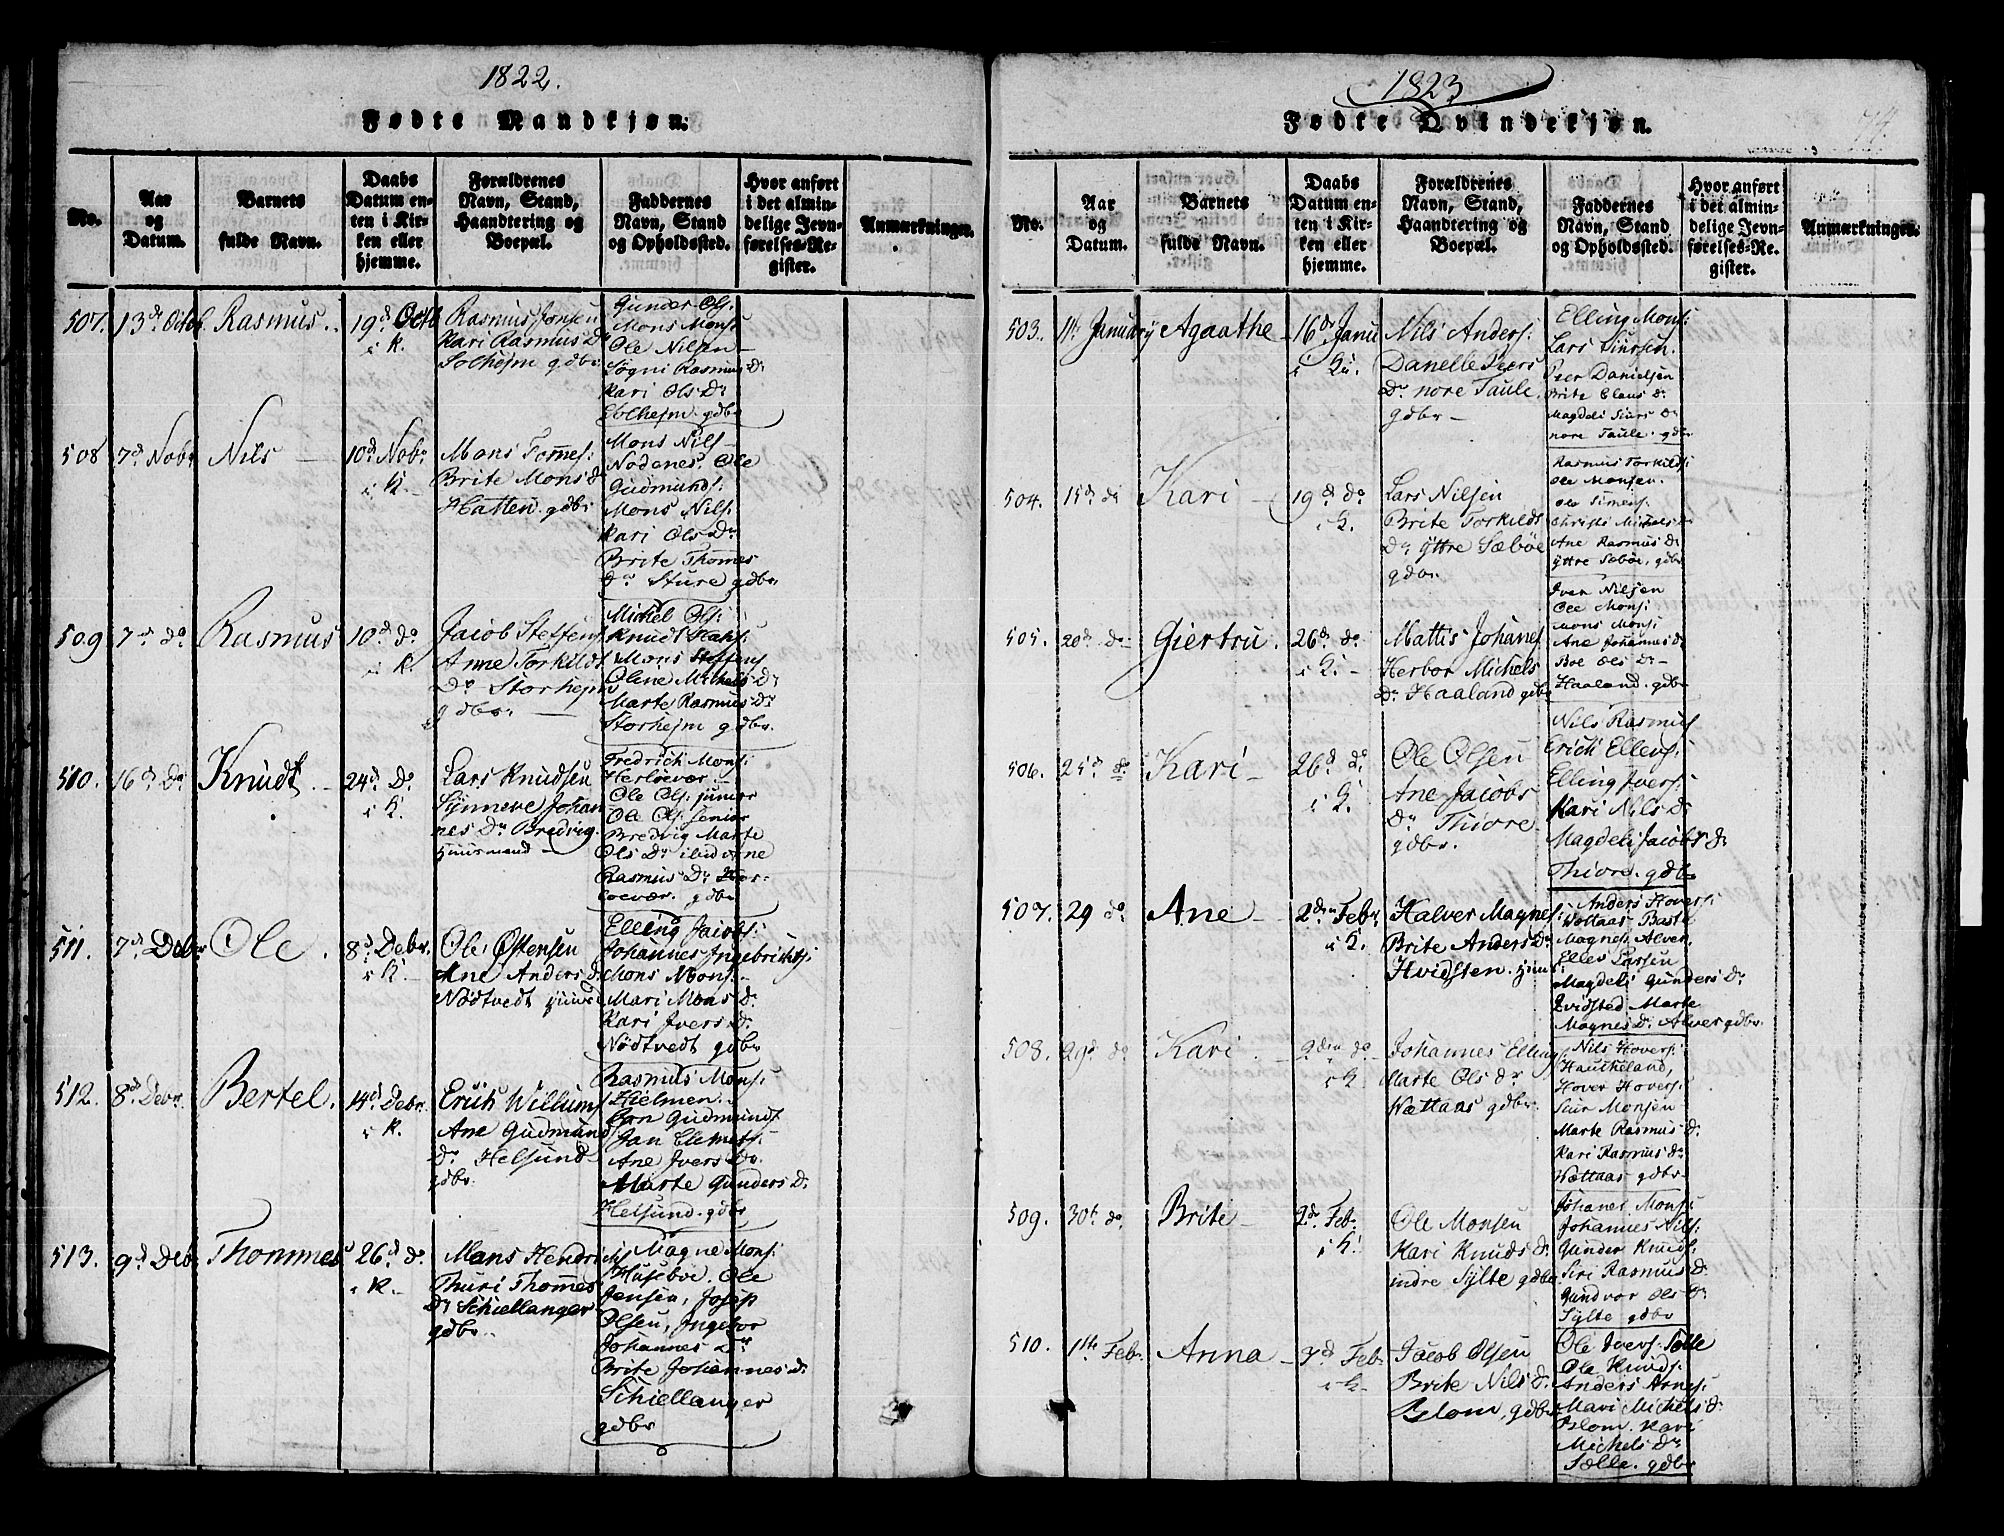 1822.
Fødte Mandkjøn.
No.
Aar og Datum.
Barnets fulde Navn.
Daabs Datum enten i Kirken eller hjemme.
Forældrenes Navn, Stand, Haandtering og Boepæl.
Faddernes Navn, Stand og Opholdssted.
Hvor anført i det almindelige Jevnførelses-Register.
Anmærkninger.
507. 13de Octob. Rasmus. 19d Octb i K.
Rasmus Jonsen
Kari Rasmus Dr
Solhejm gdbr
Gunder Ols:
Mons Mons:
Ole Nilsen
Søgni Rasmus Dr
Kari Ols Dr
Solhejm. gdbr
508 7d Nobr Nils 10d Nobr i K.
Mons Tomes:
Brite Mons d
Hatten. gdbr
Mons Nils
Nødenes. Ole
Gudmunds:
Mons Nils:
Kari Ols Dr
Brite Thomes
Dr Sture gdbr
509 7d do Rasmus 10d do i K.
Jacob Steffens
Anne Torkilds
Dr Storhejm
gdbr.
Michel Ols:
Knudt Hans:
Mons Steffens
Oline Michels Dr
Marte Rasmus Dr
Storhejm gdbr
510. 16d Do Knudt 24d Do i K.
Lars Knudsen
Synneve Johan
nes Dr Bredvig.
Huusmand
Fredrich Mons:
Herloevær
Ole Ols: junior
Ole Ols: senior
Bredvig Marte
Ols Dr ibid Ane
Rasmus Dr Her-
loevær. gdbr
511. 7d Debr Ole. 8d Debr i K.
Ole Østensen
Ane Anders d
Nødtvedt huus
Elling Jacobs:
Johannes Ingebrichts:
Mons Mons:
Mari Mons Dr
Kari Ivers Dr
Nødtvedt gdbr
512. 8d Debr. Bertel. 14d Debr. i K.
Erich Willums
Ane Gudmund
Dr Helsund
gdbr.
Rasmus Mons:
Hielmen.
Jan Gudmunds
Jan Clemets:
Ane Ivers Dr
Marte Gunders Dr
Helsund. gdbr
513. 9d Deb Thommes 26d do i K.
Mons Hendrich
Thuri Thomes
Dr Schiellanger
gdbr.
Magne Mons:
Huseboe. Ole
Jensen, Josep
Olsen, Ingebor
Johannes Dr
Brite Johannes Dr
Schiellanger
gdbr
1823
Fødte Qvindekjøn.
74.
No.
Aar og Datum.
Barnets fulde Navn.
Daabs Datum enten i Kirken eller hjemme.
Forældrenes Navn, Stand, Haandtering og Boepæl.
Faddernes Navn, Stand og Opholdssted.
Hvor anført i det almindelige Jevnførelses-Register.
Anmærkninger.
503. 11te January Agaathe 16de Janu i K.
Nils Anders:
Danelle Peers
Dr nore Taule.
gdbr
Elling Mons:
Lars Siursen.
Peer Danielsen
Brite Claus Dr
Magdeli Siurs Dr
nore Taule. gdbr
504. 15d do Kari 19d do i K.
Lars Nilsen
Brite Torkilds
Dr Yttre Sæbøe
gdbr.
Rasmus Torkilds:
Ole Monsen.
Ole Simens:
Christi Michels Dr
Ane Rasmus Dr
Yttre Sæbøe. gdbr
505. 20d do Giertru. 26d do i K.
Mattis Johanes
Herbor Michels
Dr Haaland gdbr
Iver Nilsen
Ole Mons:
Mons Mons:
Ane Johannes Dr
Boe Ols Dr
Haaland. gdbr
506. 25d do Kari 26d do i K.
Ole Olsen
Ane Jacobs
Dr Thiore
gdbr.
Nils Rasmus
Erich Ellens:
Elling Ivers:
Kari Nils Dr
Magdeli Jacobs Dr
Thiore. gdbr
507. 29 do Ane 2den Febr i K.
Halver Magnes:
Brite Anders Dr
Hvidsten. huus
Anders Hovers:
Wottaas Basta
Magnes Alver
Elles Larsen
Magdeli Gunders Dr
Hvidsted Marte
Magnes Dr Alver gdbr.
508. 29d do Kari. 9den do i K.
Johannes Elling
Marte Ols Dr
Wættaas gdbr
Nils Hovers:
Haucheland,
Hover Hovers:
Siur Monsen
Marte Rasmus Dr
Kari Rasmus Dr
Wottaas gdbr
509. 30te do Brite 2de Feb. i K.
Ole Monsen
Kari Knuds Dr
indre Sylte gdbr
Johanes Mons:
Johannes Nils:
Gunder Knuds:
Siri Rasmus Dr
Gundvor Ols Dr
Sylte gdbr
510. 1te Feb. Anna 7d Feb. i K.
Jacob Olsen
Brite Nils Dr
Blom, gdbr
Ole Ivers: Sølle
Ole Knuds:
Anders Arnes:
Mari Michels Dr
Blom. Kari
Michels Dr
Sælle. gdbr